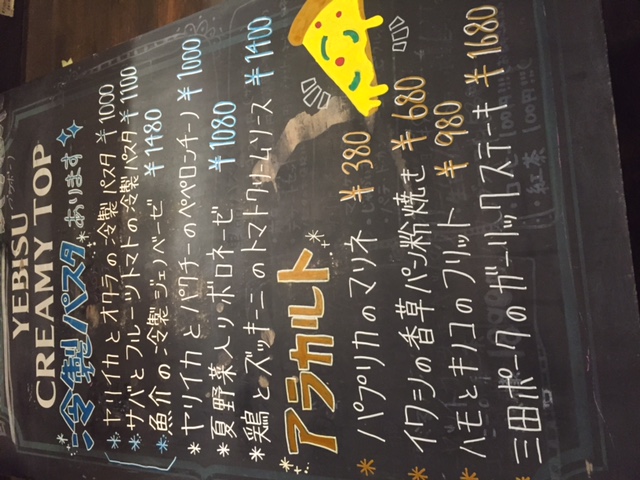 YEBISU
CREAMY TOP
冷製パスタあります
ヤリイカとオクラの冷製パスタ ¥1000
サバとフルーツトマトの冷製パスタ ¥1100
魚介の冷製ジェノベーゼ ¥1480
ヤリイカとパクチーのペペロンチーノ ¥1000
夏野菜入りボロネーゼ ¥1080
鶏とズッキーニのトマトクリームソース ¥1400
アラカルト
パプリカのマリネ ¥380
イワシの香草パン粉焼き ¥680
ハモとキノコのフリット ¥980
三田ポークのガーリックステーキ ¥1680